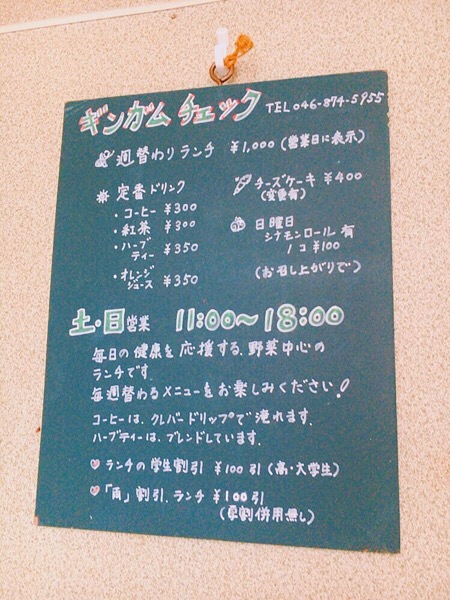 ギンガム チェック TEL 046-874-5955
週替わりランチ ¥1,000 (営業日に表示)
定番ドリンク
・コーヒー ¥300
・紅茶 ¥300
・ハーブ
ティー ¥350
・オレンジ
ジュース ¥350
チーズケーキ ¥400
(変更有)
日曜日
シナモンロール 有
1コ ¥100
(お召し上がりで)
土・日営業 11:00〜18:00
毎日の健康を応援する、野菜中心の
ランチです。
毎週替わるメニューをお楽しみください!
コーヒーは、クレバードリップで淹れます。
ハーブティーは、ブレンドしています。
ランチの学生割引 ¥100引(高・大学生)
「雨」割引、ランチ ¥100引
(割併用無し)